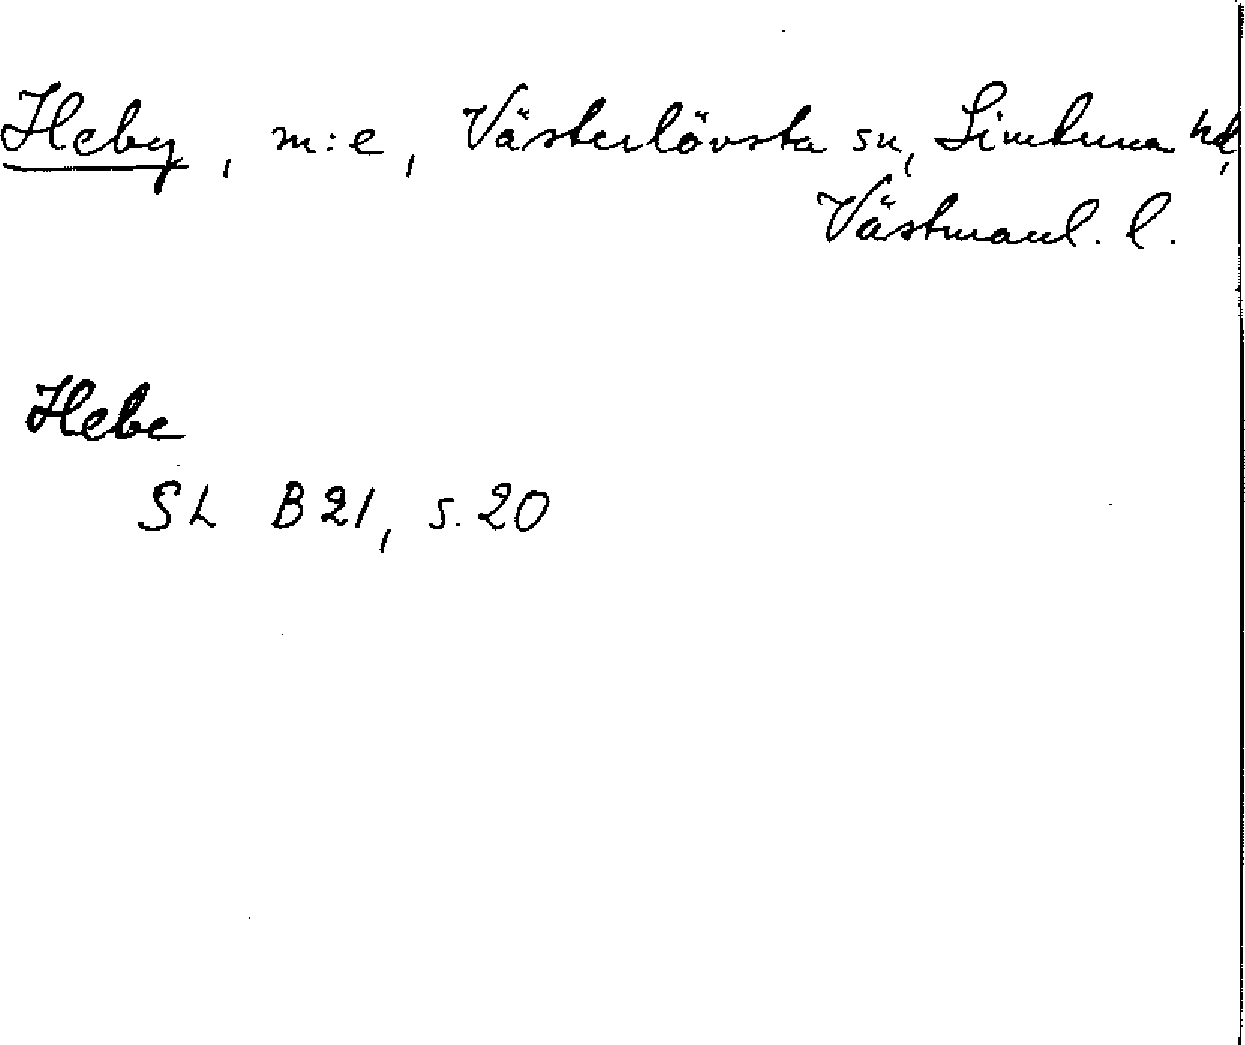 Heby, m:e, Västerlövsta sn, Simtuna hd,
Västmanl. l.
Hebe
SL B21, s. 20